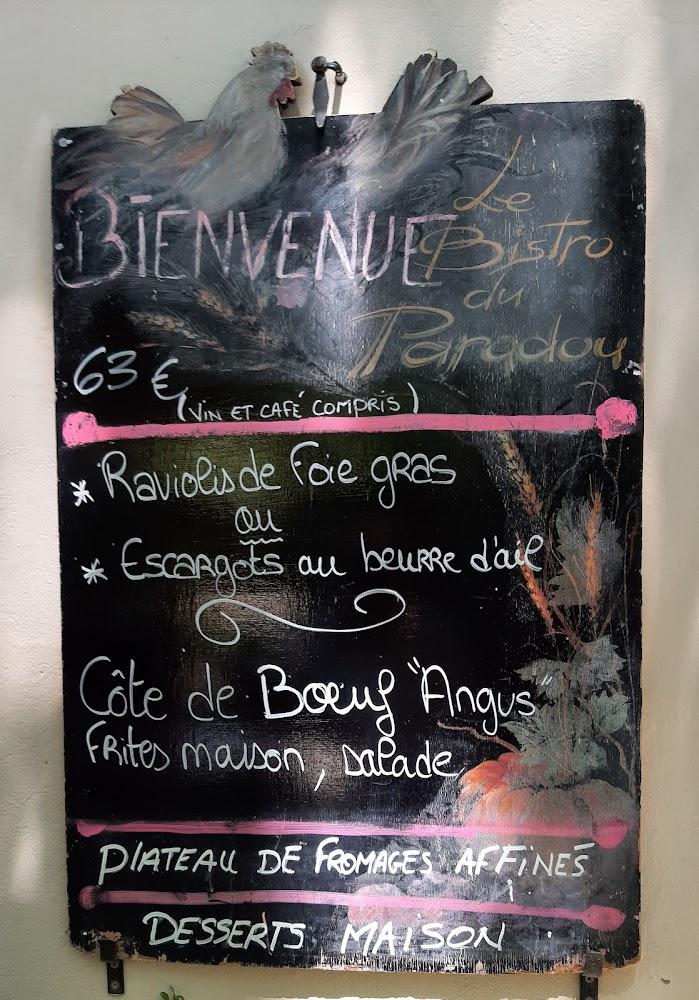 BIENVENUE
Le
Bistro
du
Paradou
63 €
(VIN ET CAFÉ COMPRIS)
* Raviolis de Foie gras
ou
* Escargots au beurre d'ail
Côte de Boeuf "Angus"
Frites maison, salade
PLATEAU DE FROMAGES AFFINÉS
DESSERTS MAISON